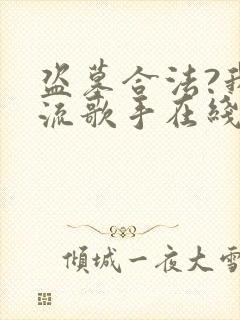 盗墓合法?我
流歌手在綫
倾城一夜大雪